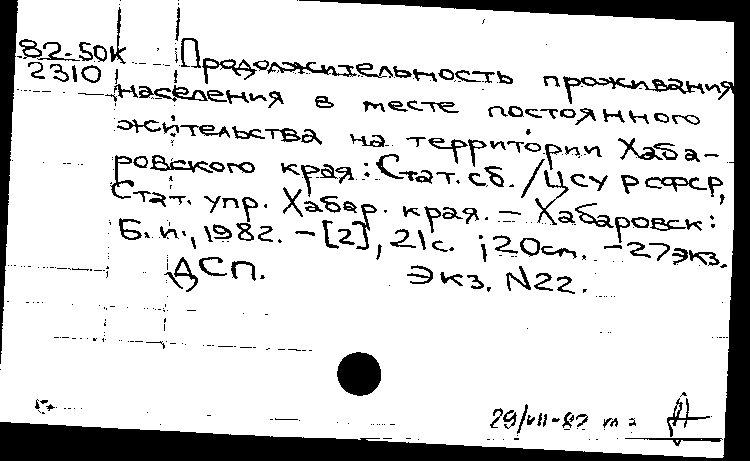 82-50К Продолжительность проживания
2310
населения в месте постоянного
жительства на территории Хаба-
ровского края: Стат. сб. / ЦСУ РСФСР,
Стат. упр. Хабар. края. – Хабаровск:
Б. и., 1982. – [2], 21с. ; 20 см. – 27 экз.
ДСП. Экз. N22.
29/VII-82